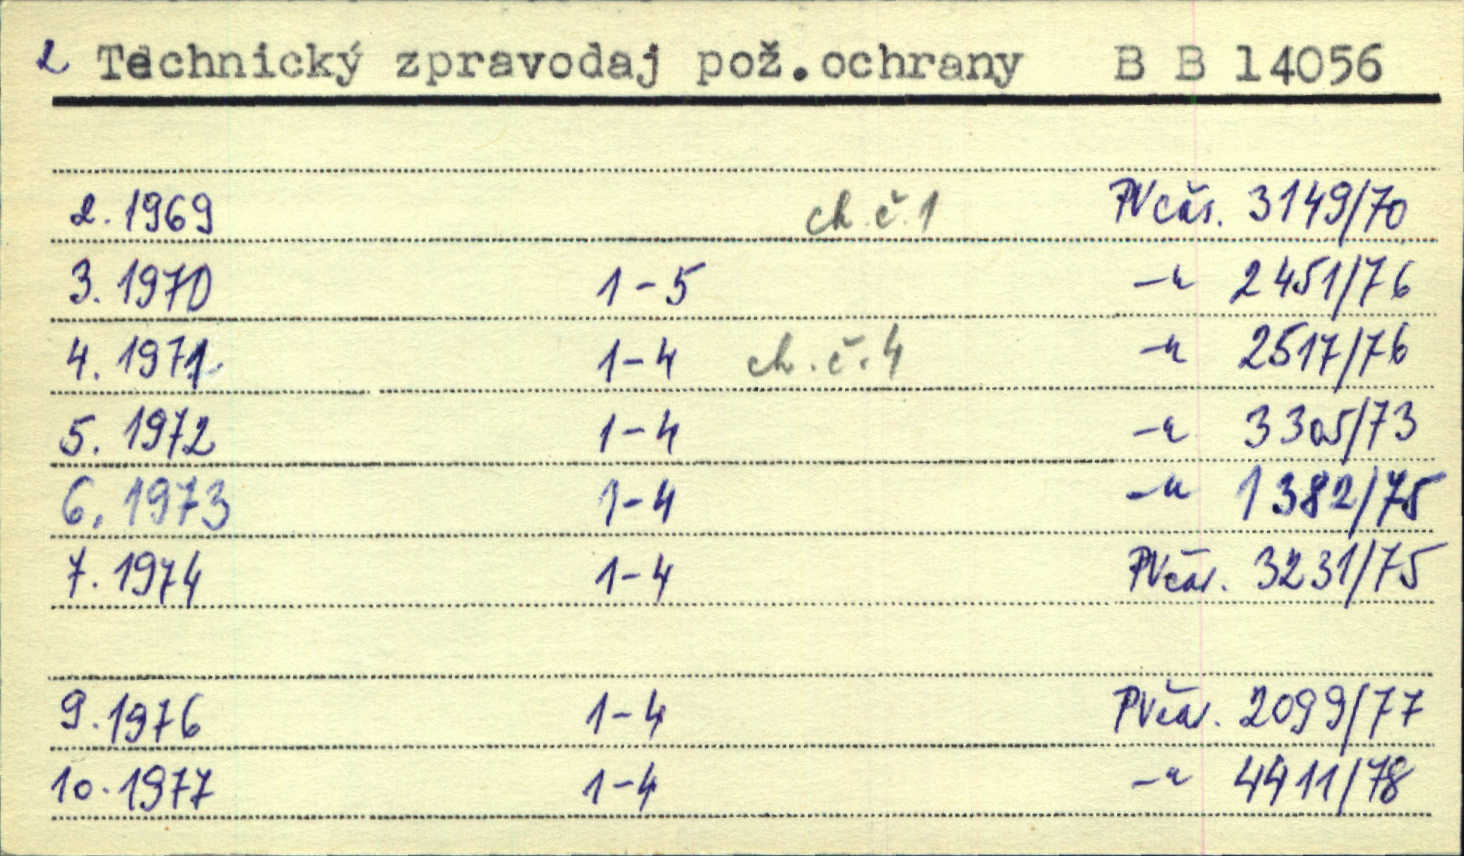 2 Technický zpravodaj pož.ochrany B B 14056
2. 1969 ch. č. 1 PV čás. 3149/70
3. 1970 1-5 -"- 2451/76
4. 1971 1-4 ch. č. 4 -"- 2517/76
5. 1972 1-4 -"- 3305/73
6. 1973 1-4 -"- 1382/75
7. 1974 1-4 PV čás. 3231/75
9. 1976 1-4 PV čás. 2099/77
10. 1977 1-4 -"- 4411/78